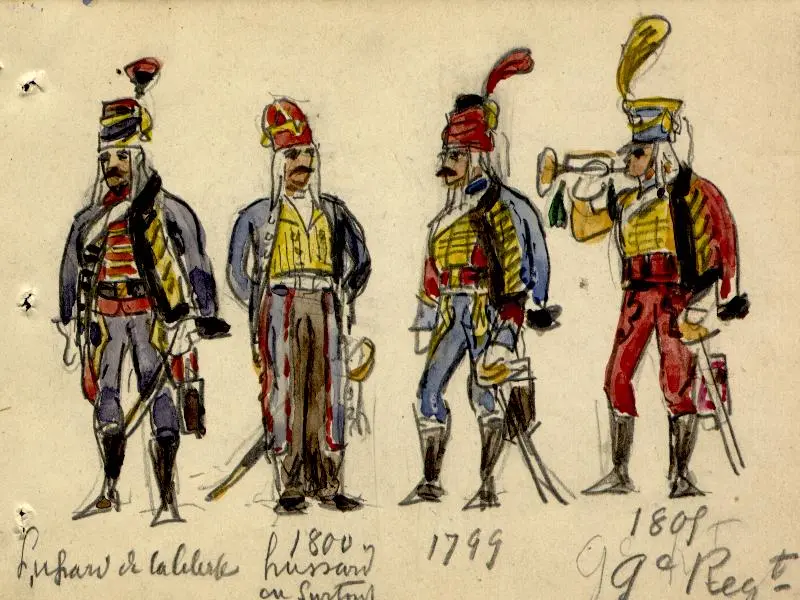 hussard de la liberté
1800
hussard
en Surtout
1799
1805
9e Regt